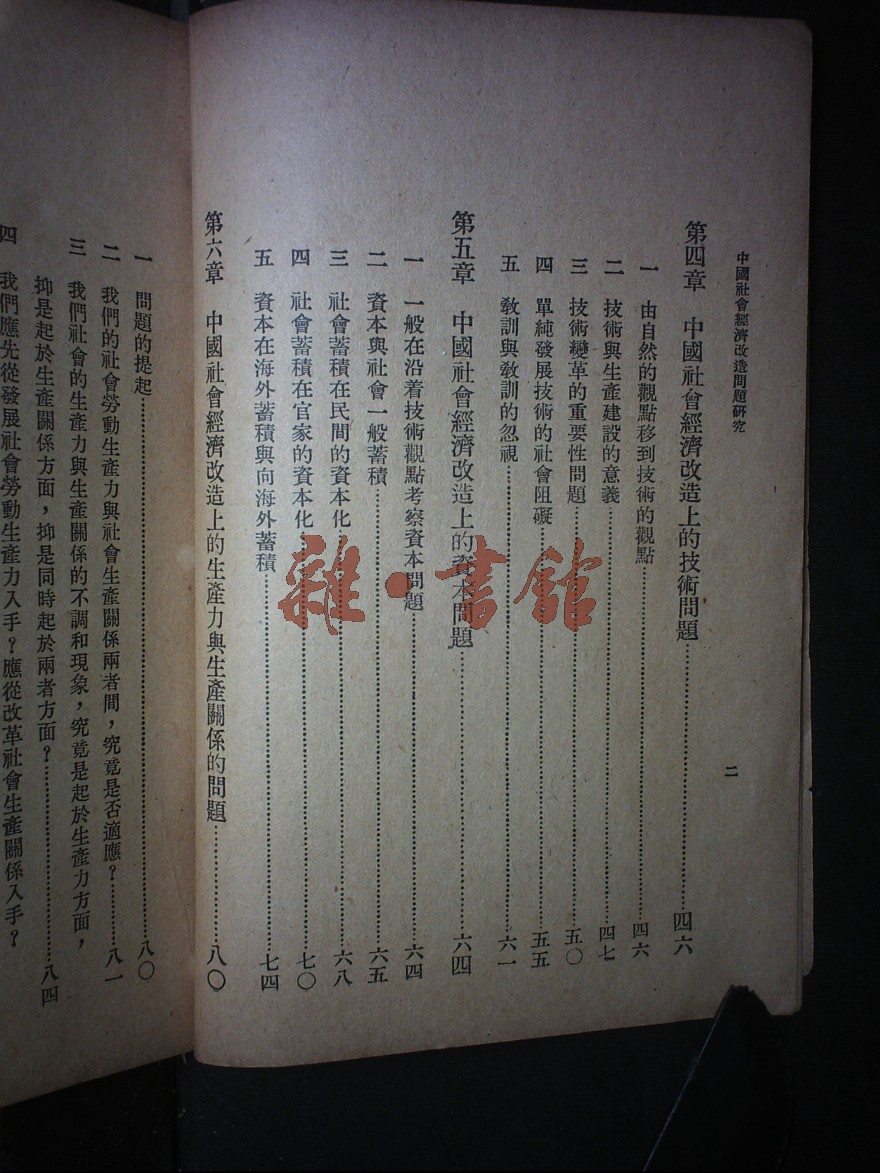 中國社會經濟改造問題研究
二
第四章 中國社會經濟改造上的技術問題……四六
一 由自然的觀點移到技術的觀點……四六
二 技術與生產建設的意義……四七
三 技術變革的重要性問題……五〇
四 單純發展技術的社會阻礙……五五
五 敎訓與敎訓的忽視……六一
第五章 中國社會經濟改造上的資本問題……六四
一 一般在沿着技術觀點考察資本問題……六四
二 資本與社會一般蓄積……六五
三 社會蓄積在民間的資本化……六八
四 社會蓄積在官家的資本化……七〇
五 資本在海外蓄積與向海外蓄積……七四
第六章 中國社會經濟改造上的生產力與生產關係的問題……八〇
一 問題的提起……八〇
二 我們的社會勞動生產力與社會生產關係兩者間，究竟是否適應？……八一
三 我們社會的生產力與生產關係的不調和現象，究竟是起於生產力方面，
抑是起於生產關係方面，抑是同時起於兩者方面？……八四
四 我們應先從發展社會勞動生產力入手？應從改革社會生產關係入手？
雜·書館